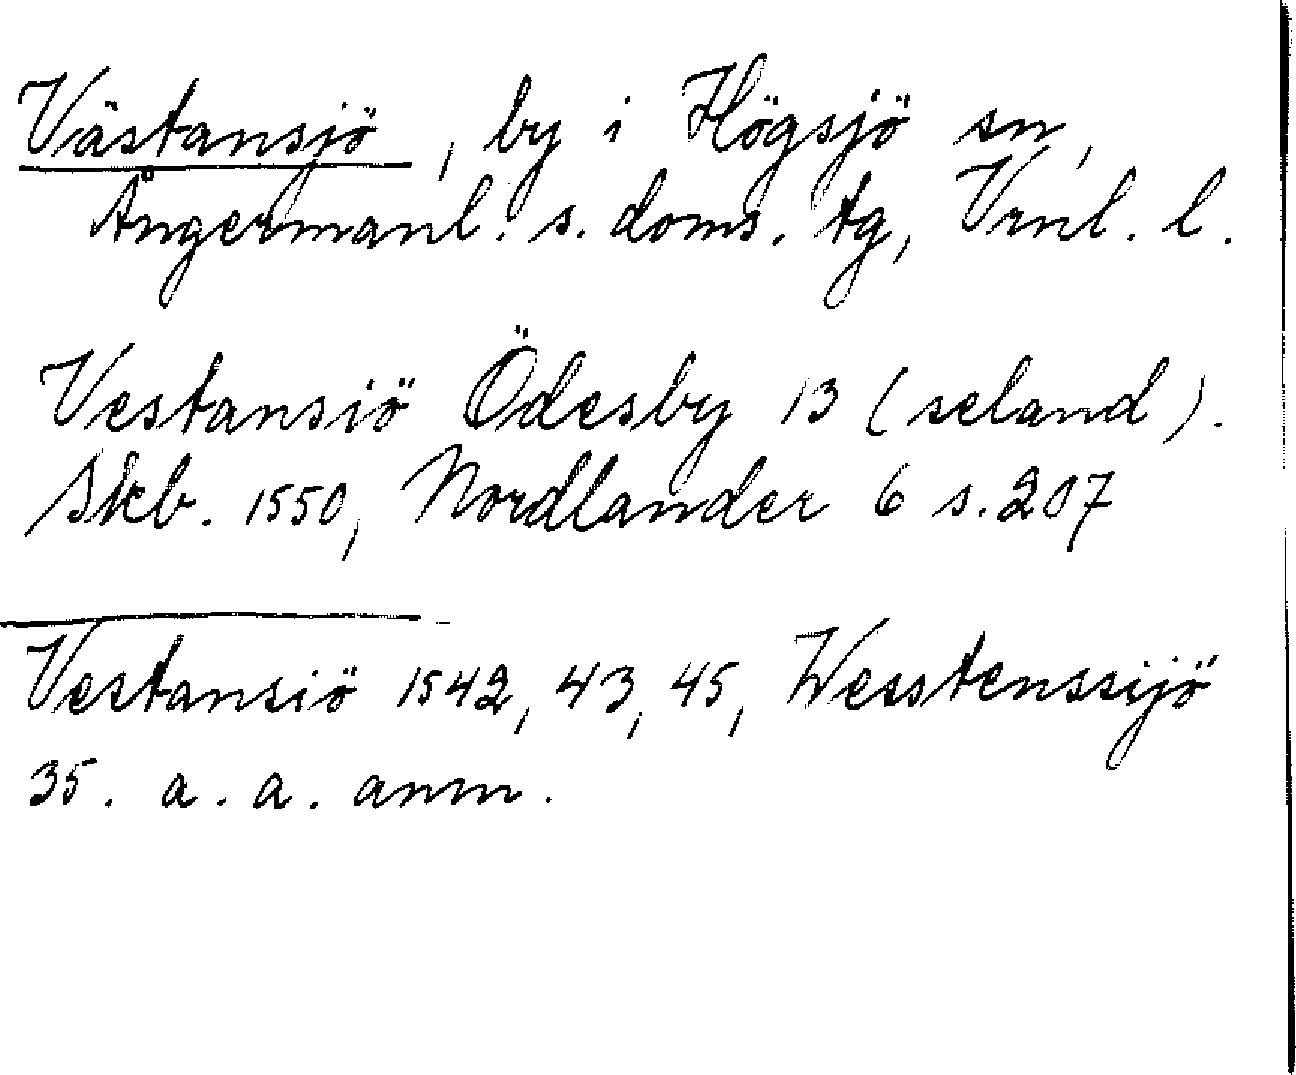 Västansjö, by i Högsjö sn,
Ångermanl. s. doms. tg, Vrnl. l.
Vestansiö Ödesby 13 (seland).
Skb. 1550, Nordlander 6 s. 207
Vestansiö 1542, 43, 45, Wesstenssijö
35. a. a. anm.